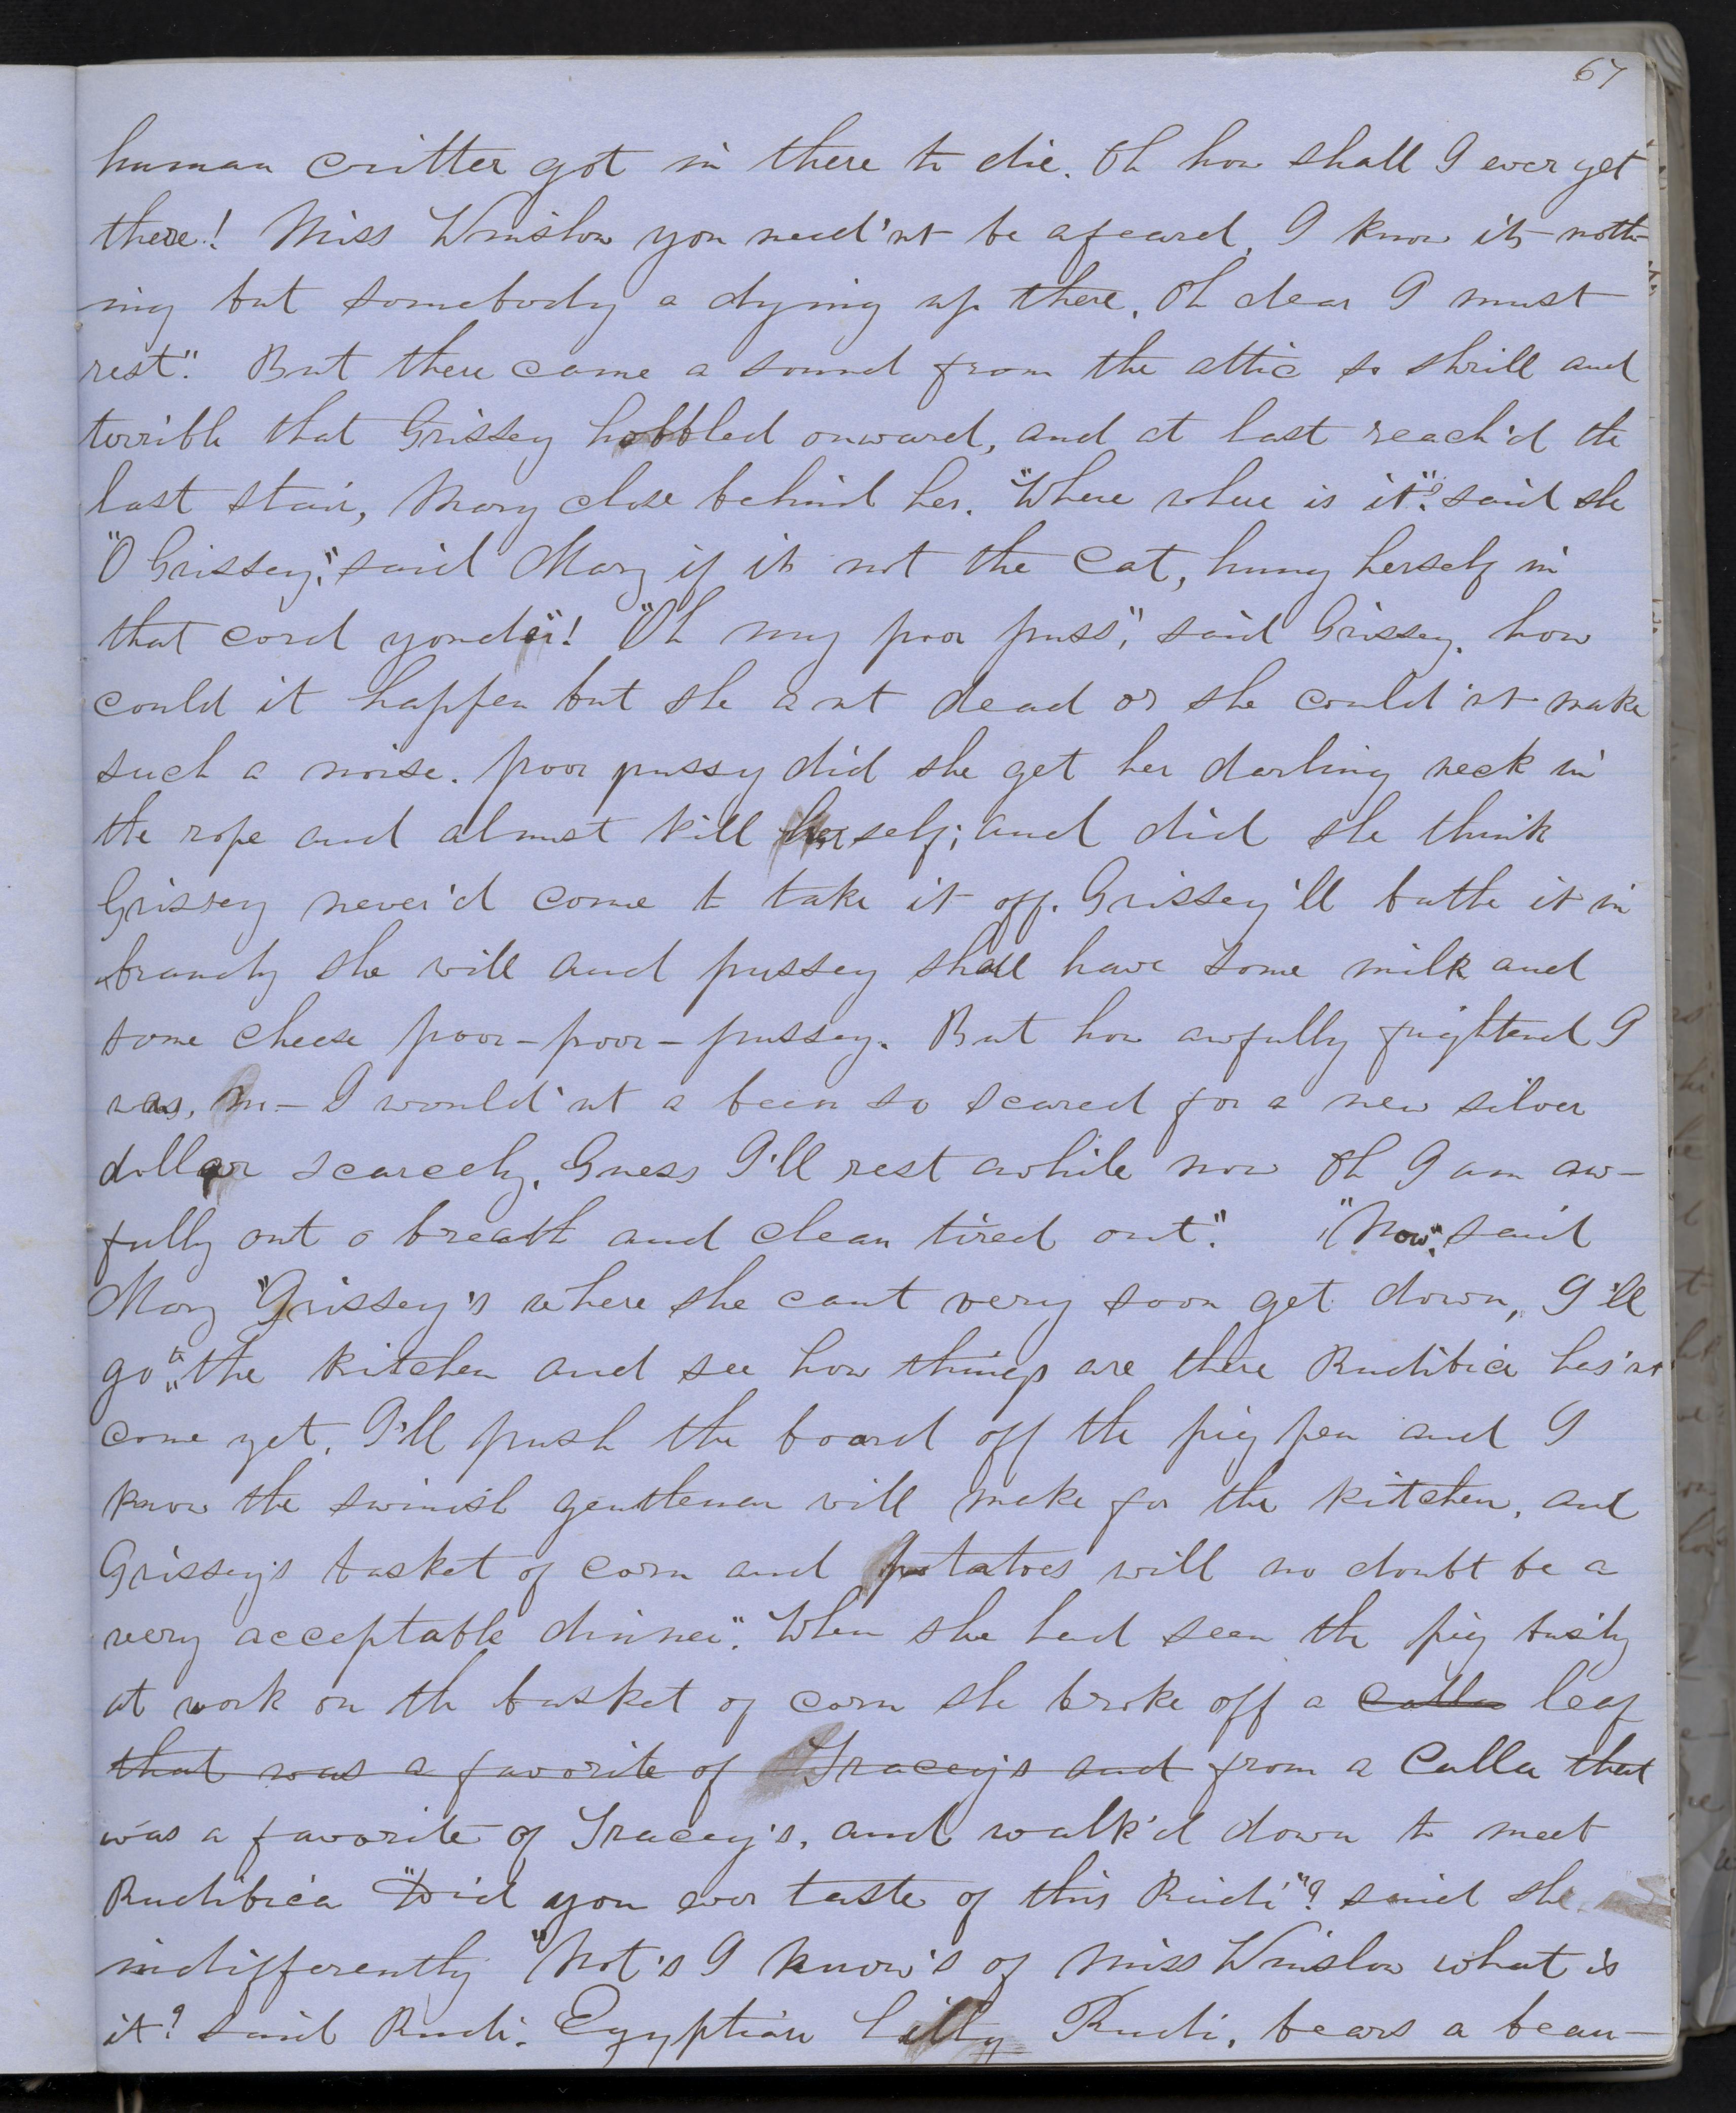 67
human critter got in there to die. Oh how shall I ever get
there! Miss Winslow you need'nt be afeard, I know its noth-
ing but somebody a dying up there. Oh dear I must
rest." But there came a sound from the attic so shrill and
terrible that Grissey hobbled onward, and at last reach'd the
last stair, Mary close behind her. "Where where is it"? said she
"O Grissey," said Mary if it not the cat, hung herself in
that cord yonder"! "Oh my poor puss", said Grissey. how
could it happen but she ant dead or she could'nt make
such a noise. poor pussy did she get her darling neck in
the rope and almost kill herself; and did she think
Grissey never'd come to take it off. Grissey'll bathe it in
brandy she will and pussey shall have some milk and
some cheese poor-poor-pussey. But how awfully frightend I
was, m- I would'nt a been so scared for a new silver
dollar scarcely. Guess I'll rest awhile now Oh I am aw-
fully out o breath and clean tired out". "Now", said
Mary "Grissey's where she cant very soon get down, I'll
go to the kitchen and see how things are there Rudibica has'nt
come yet. I'll push the board off the pig pen and I
know the swinish gentleman will make for the kitchen, and
Grissey's basket of corn and potatoes will no doubt be a
very acceptable dinner". When she had seen the pig busily
at work on the basket of corn she broke off a calla leaf
that was a favorite of Tracey's and from a Calla that
was a favorite of Tracey's, and walk'd down to meet
Rudibica "Did you ever taste of this Rudi"? said she
indifferently "Not's I know's of Miss Winslow what is
it? said Rudi. Egyptian Lilly Rudi, bears a beau-